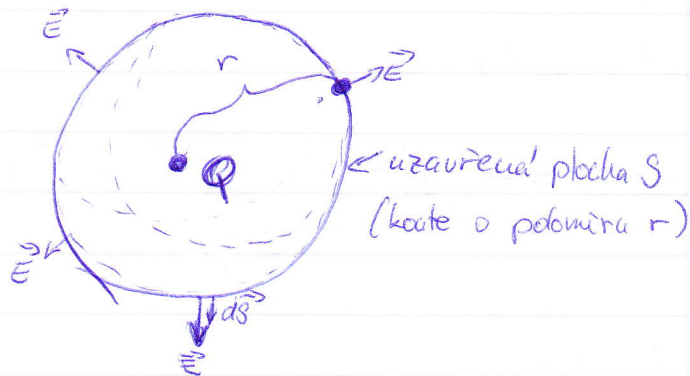 E⃗
r
E⃗
Q
uzavřená plocha S
(koule o poloměru r)
E⃗
dS⃗
E⃗